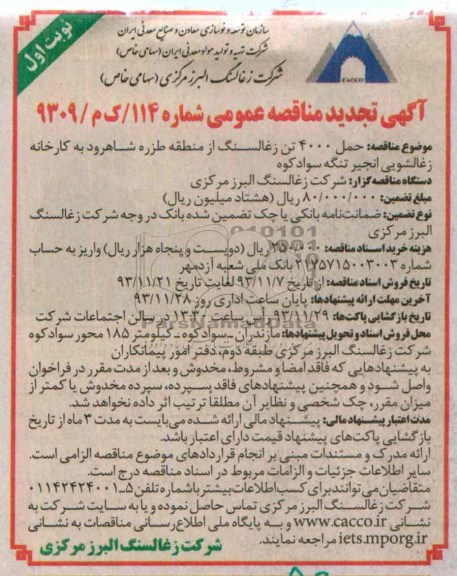 نوبت اول
سازمان توسعه و نوسازی معادن و صنایع معدنی ایران
شرکت تهیه و تولید مواد معدنی ایران (سهامی خاص)
شرکت زغالسنگ البرز مرکزی (سهامی خاص)
CACCO
آگهی تجدید مناقصه عمومی شماره ۱۱۴/ک م/۹۳۰۹
موضوع مناقصه: حمل ۴۰۰۰ تن زغالسنگ از منطقه طزره شاهرود به کارخانه
زغالشویی انجیر تنگه سوادکوه
دستگاه مناقصه گزار: شرکت زغالسنگ البرز مرکزی
مبلغ تضمین: ۸۰/۰۰۰/۰۰۰ ریال (هشتاد میلیون ریال)
نوع تضمین: ضمانت‌نامه بانکی یا چک تضمین شده بانک در وجه شرکت زغالسنگ
البرز مرکزی
هزینه خرید اسناد مناقصه: ۲۵۰/۰۰۰ ریال (دویست و پنجاه هزار ریال) واریز به حساب
شماره ۲۱۷۵۷۱۵۰۰۳۰۰۲ بانک ملی شعبه آزادمهر
تاریخ فروش اسناد مناقصه: از تاریخ ۹۳/۱۱/۷ لغایت تاریخ ۹۳/۱۱/۲۱
آخرین مهلت ارائه پیشنهادها: پایان ساعت اداری روز ۹۳/۱۱/۲۸
تاریخ بازگشایی پاکت‌ها: ۹۳/۱۱/۲۹ رأس ساعت ۱۳:۳۰ در سالن اجتماعات شرکت
محل فروش اسناد و تحویل پیشنهادها: مازندران ـ سوادکوه ـ کیلومتر ۱۸۵ محور سوادکوه
شرکت زغالسنگ البرز مرکزی طبقه دوم، دفتر امور پیمانکاران
به پیشنهادهایی که فاقد امضا و مشروط، مخدوش و بعد از مدت مقرر در فراخوان
واصل شود و همچنین پیشنهادهای فاقد سپرده، سپرده مخدوش یا کمتر از
میزان مقرر، چک شخصی و نظایر آن مطلقا ترتیب اثر داده نخواهد شد.
مدت اعتبار پیشنهاد مالی: پیشنهاد مالی ارائه شده می‌بایست به مدت ۳ ماه از تاریخ
بازگشایی پاکت‌های پیشنهاد قیمت دارای اعتبار باشد.
ارائه مدرک و مستندات مبنی بر انجام قراردادهای موضوع مناقصه الزامی است.
سایر اطلاعات جزئیات و الزامات مربوط در اسناد مناقصه درج است.
متقاضیان می‌توانند برای کسب اطلاعات بیشتر با شماره تلفن ۵ـ۰۱۱۴۲۴۲۴۰۰۱
شرکت زغالسنگ البرز مرکزی تماس حاصل نموده و یا به سایت شرکت به
نشانی www.cacco.ir و به پایگاه ملی اطلاع رسانی مناقصات به نشانی
iets.mporg.ir مراجعه نمایند.
شرکت زغالسنگ البرز مرکزی